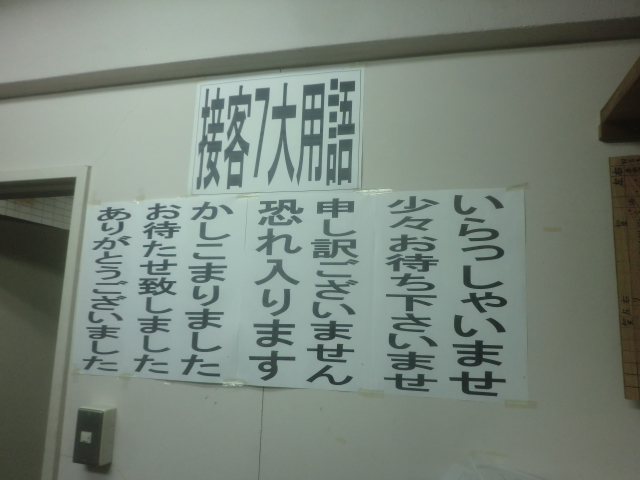 接客7大用語
いらっしゃいませ
少々お待ち下さいませ
申し訳ございません
恐れ入ります
かしこまりました
お待たせ致しました
ありがとうございました